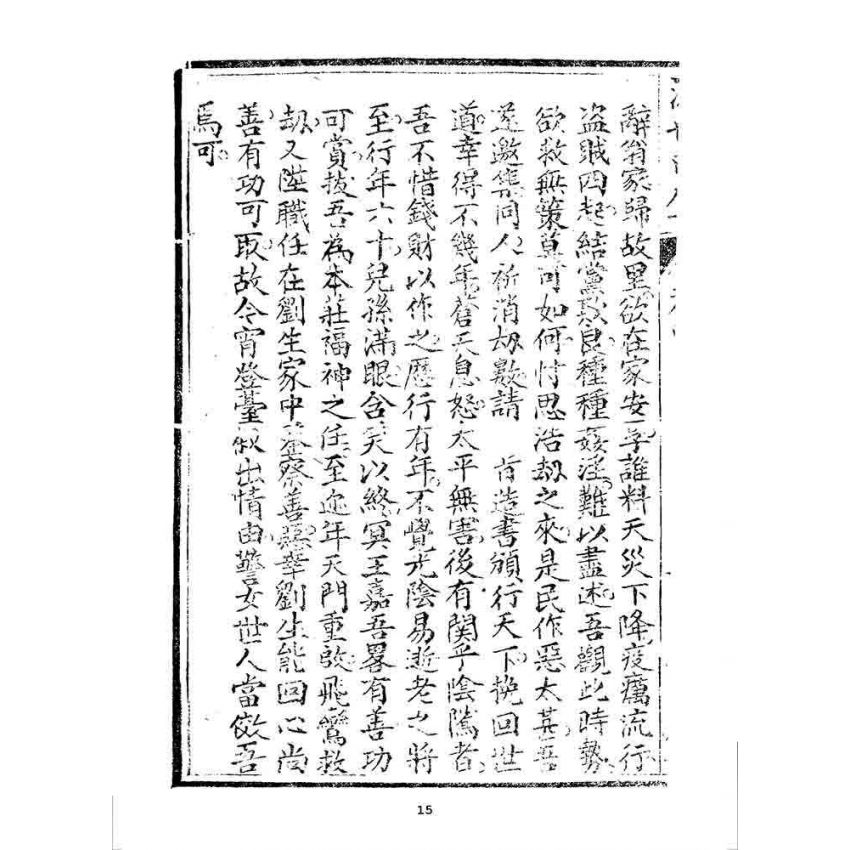 辭翁家歸故里欲在家安享誰料天災下降疫癘流行
盜賊四起結黨欺良種種姦淫難以盡述吾觀此時勢
欲救無策莫可如何忖思浩劫之來是民作惡太甚吾
遂邀集同人祈消劫數請　旨造書頒行天下挽回世
道幸得不幾年蒼天息怒太平無害後有関乎陰隲者
吾不惜錢財以作之歷行有年不覺光陰易逝老之將
至行年六十兒孫滿眼含笑以終冥王嘉吾畧有善功
可賞拔吾為本莊福神之任至近年天門重啟飛鸞救
劫又陞職任在劉生家中鑒察善惡幸劉生能回心尚
善有功可取故令宵登臺叙出情由警女世人當傚吾
焉可
15